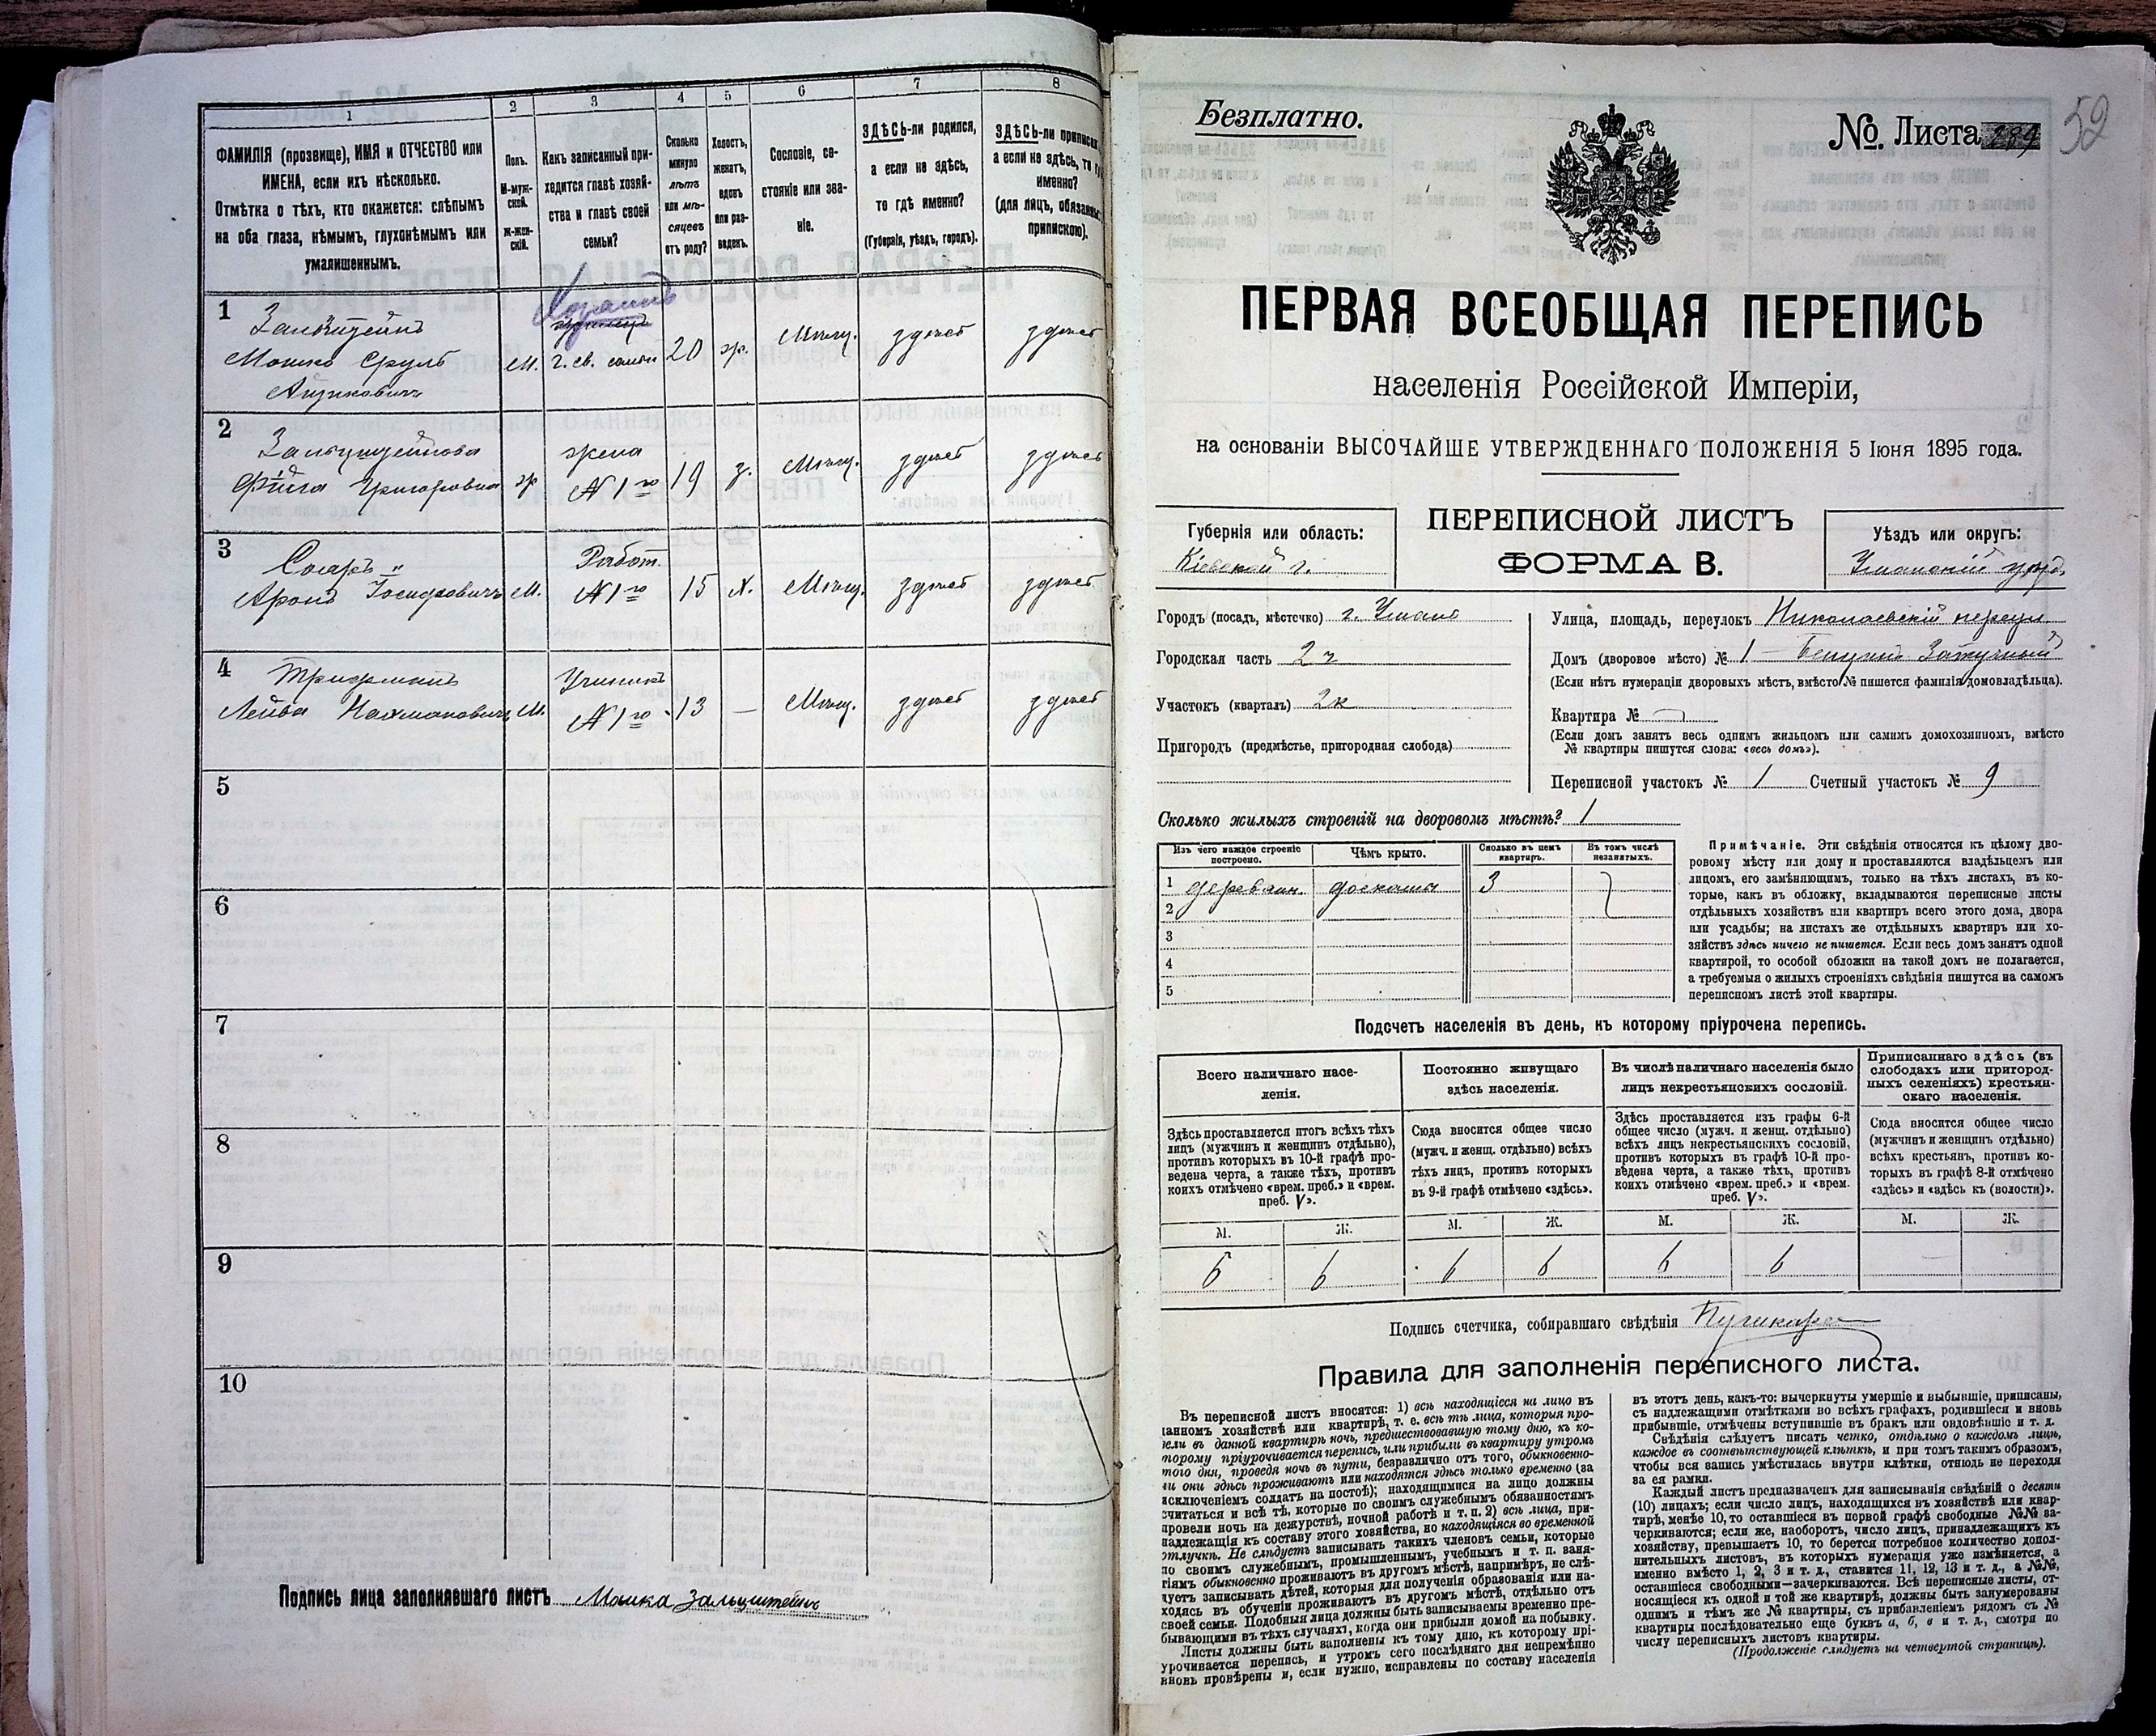 1
2
3
4
5
6
7
8
ФАМИЛІЯ (прозвище), ИМЯ и ОТЧЕСТВО или
ИМЕНА, если ихъ нѣсколько.
Отмѣтка о тѣхъ, кто окажется: слѣпымъ
на оба глаза, нѣмымъ, глухонѣмымъ или
умалишеннымъ.
Полъ.
М-муж-
ской.
Ж-жен-
скій.
Какъ записанный при-
ходится главѣ хозяй-
ства и главѣ своей
семьи?
Сколько
минуло
лѣтъ
или мѣ-
сяцевъ
отъ роду?
Холостъ,
женатъ,
вдовъ
или раз-
веденъ.
Сословіе, со-
стояніе или зва-
ніе.
ЗДѢСЬ-ли родился,
а если не здѣсь,
то гдѣ именно?
(Губернія, уѣздъ, городъ).
ЗДѢСЬ-ли приписанъ
а если не здѣсь, то
именно?
(для лицъ, обязанны
припискою).
1
Мошко Сруль
Ицковичъ
М.
Хозяинъ
г. св. семьи
20
ж.
Мѣщ.
здѣсь
здѣсь
2
ж
жена
№ 1го
19
з.
Мѣщ.
здѣсь
здѣсь
3
Аронъ Іосифовичъ
М.
Работ.
№ 1го
15
Х.
Мѣщ.
здѣсь
здѣсь
4
Лейба Нахмановичъ
М.
Ученикъ
№ 1го
13
—
Мѣщ.
здѣсь
здѣсь
5
6
7
8
9
10
Подпись лица заполнявшаго листъ Мошка Зальцштейнъ
Безплатно.
№. Листа 289
52
ПЕРВАЯ ВСЕОБЩАЯ ПЕРЕПИСЬ
населенія Россійской Имперіи,
на основаніи ВЫСОЧАЙШЕ УТВЕРЖДЕННАГО ПОЛОЖЕНІЯ 5 Іюня 1895 года.
ПЕРЕПИСНОЙ ЛИСТЪ
ФОРМА В.
Губернія или область:
Кіевской г.
Уѣздъ или округъ:
Уманскій уѣздъ
Городъ (посадъ, мѣстечко) г. Умань
Городская часть 2 ч
Участокъ (кварталъ) 2 к
Пригородъ (предмѣстье, пригородная слобода)
Улица, площадь, переулокъ Николаевскій переул
Домъ (дворовое мѣсто) № 1 —
(Если нѣтъ нумераціи дворовыхъ мѣстъ, вмѣсто № пишется фамилія домовладѣльца).
Квартира №
(Если домъ занятъ весь однимъ жильцомъ или самимъ домохозяиномъ, вмѣсто
№ квартиры пишутся слова: «весь домъ»).
Переписной участокъ № 1 Счетный участокъ № 9
Сколько жилыхъ строеній на дворовомъ мѣстѣ? 1
Изъ чего каждое строеніе
построено.
Чѣмъ крыто.
Сколько въ немъ
квартиръ.
Въ томъ числѣ
незанятыхъ.
1 деревян. досками 3
2
3
4
5
Примѣчаніе. Эти свѣдѣнія относятся къ цѣлому дво-
ровому мѣсту или дому и проставляются владѣльцемъ или
лицомъ, его замѣняющимъ, только на тѣхъ листахъ, въ ко-
торые, какъ въ обложку, вкладываются переписные листы
отдѣльныхъ хозяйствъ или квартиръ всего этого дома, двора
или усадьбы; на листахъ же отдѣльныхъ квартиръ или хо-
зяйствъ здѣсь ничего не пишется. Если весь домъ занятъ одной
квартирой, то особой обложки на такой домъ не полагается,
а требуемыя о жилыхъ строеніяхъ свѣдѣнія пишутся на самомъ
переписномъ листѣ этой квартиры.
Подсчетъ населенія въ день, къ которому пріурочена перепись.
Всего наличнаго насе-
ленія.
Постоянно живущаго
здѣсь населенія.
Въ числѣ наличнаго населенія было
лицъ некрестьянскихъ сословій.
Приписаннаго здѣсь (въ
слободахъ или пригород-
ныхъ селеніяхъ) крестьян-
скаго населенія.
Здѣсь проставляется итогъ всѣхъ тѣхъ
лицъ (мужчинъ и женщинъ отдѣльно),
противъ которыхъ въ 10-й графѣ про-
ведена черта, а также тѣхъ, противъ
коихъ отмѣчено «врем. преб.» и «врем.
преб. V».
Сюда вносится общее число
(мужч. и женщ. отдѣльно) всѣхъ
тѣхъ лицъ, противъ которыхъ
въ 9-й графѣ отмѣчено «здѣсь».
Здѣсь проставляется изъ графы 6-й
общее число (мужч. и женщ. отдѣльно)
всѣхъ лицъ некрестьянскихъ сословій,
противъ которыхъ въ графѣ 10-й про-
ведена черта, а также тѣхъ, противъ
коихъ отмѣчено «врем. преб.» и «врем.
преб. V».
Сюда вносится общее число
(мужчинъ и женщинъ отдѣльно)
всѣхъ крестьянъ, противъ ко-
торыхъ въ графѣ 8-й отмѣчено
«здѣсь» и «здѣсь къ (волости)».
М. Ж. М. Ж. М. Ж. М. Ж.
6 6 6 6 6 6
Подпись счетчика, собиравшаго свѣдѣнія
Правила для заполненія переписного листа.
Въ переписной листъ вносятся: 1) всѣ находящіеся на лицо въ
данномъ хозяйствѣ или квартирѣ, т. е. всѣ тѣ лица, которыя про-
вели въ данной квартирѣ ночь, предшествовавшую тому дню, къ ко-
торому пріурочивается перепись, или прибыли въ квартиру утромъ
того дня, проведя ночь въ пути, безразлично отъ того, обыкновенно-
ли они здѣсь проживаютъ или находятся здѣсь только временно (за
исключеніемъ солдатъ на постоѣ); находящимися на лицо должны
считаться и всѣ тѣ, которые по своимъ служебнымъ обязанностямъ
провели ночь на дежурствѣ, ночной работѣ и т. п. 2) всѣ лица, при-
надлежащія къ составу этого хозяйства, но находящіяся во временной
отлучкѣ. Не слѣдуетъ записывать такихъ членовъ семьи, которые
по своимъ служебнымъ, промышленнымъ, учебнымъ и т. п. заня-
тіямъ обыкновенно проживаютъ въ другомъ мѣстѣ, напримѣръ, не слѣ-
дуетъ записывать дѣтей, которыя для полученія образованія или на-
ходясь въ обученіи проживаютъ въ другомъ мѣстѣ, отдѣльно отъ
своей семьи. Подобныя лица должны быть записываемы временно пре-
бывающими въ тѣхъ случаяхъ, когда они прибыли домой на побывку.
Листы должны быть заполнены къ тому дню, къ которому прі-
урочивается перепись, и утромъ сего послѣдняго дня непремѣнно
вновь провѣрены и, если нужно, исправлены по составу населенія
въ этотъ день, какъ-то: вычеркнуты умершіе и выбывшіе, приписаны,
съ надлежащими отмѣтками во всѣхъ графахъ, родившіеся и вновь
прибывшіе, отмѣчены вступившіе въ бракъ или овдовѣвшіе и т. д.
Свѣдѣнія слѣдуетъ писать четко, отдѣльно о каждомъ лицѣ,
каждое въ соотвѣтствующей клѣткѣ, и при томъ такимъ образомъ,
чтобы вся запись умѣстилась внутри клѣтки, отнюдь не переходя
за ея рамки.
Каждый листъ предназначенъ для записыванія свѣдѣній о десяти
(10) лицахъ; если число лицъ, находящихся въ хозяйствѣ или квар-
тирѣ, менѣе 10, то оставшіеся въ первой графѣ свободные №№ за-
черкиваются; если же, наоборотъ, число лицъ, принадлежащихъ къ
хозяйству, превышаетъ 10, то берется потребное количество допол-
нительныхъ листовъ, въ которыхъ нумерація уже измѣняется, а
именно вмѣсто 1, 2, 3 и т. д., ставится 11, 12, 13 и т. д., а №№,
оставшіеся свободными—зачеркиваются. Всѣ переписные листы, от-
носящіеся къ одной и той же квартирѣ, должны быть занумерованы
однимъ и тѣмъ же № квартиры, съ прибавленіемъ рядомъ съ №
квартиры послѣдовательно еще буквъ а, б, в и т. д., смотря по
числу переписныхъ листовъ квартиры.
(Продолженіе слѣдуетъ на четвертой страницѣ).